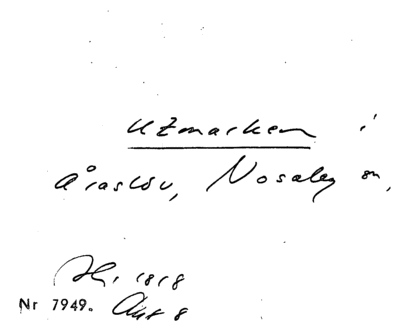 Utmarken i
Åraslöv, Nosaby sn,
Sk. 1818
Nr 7949. Akt 8